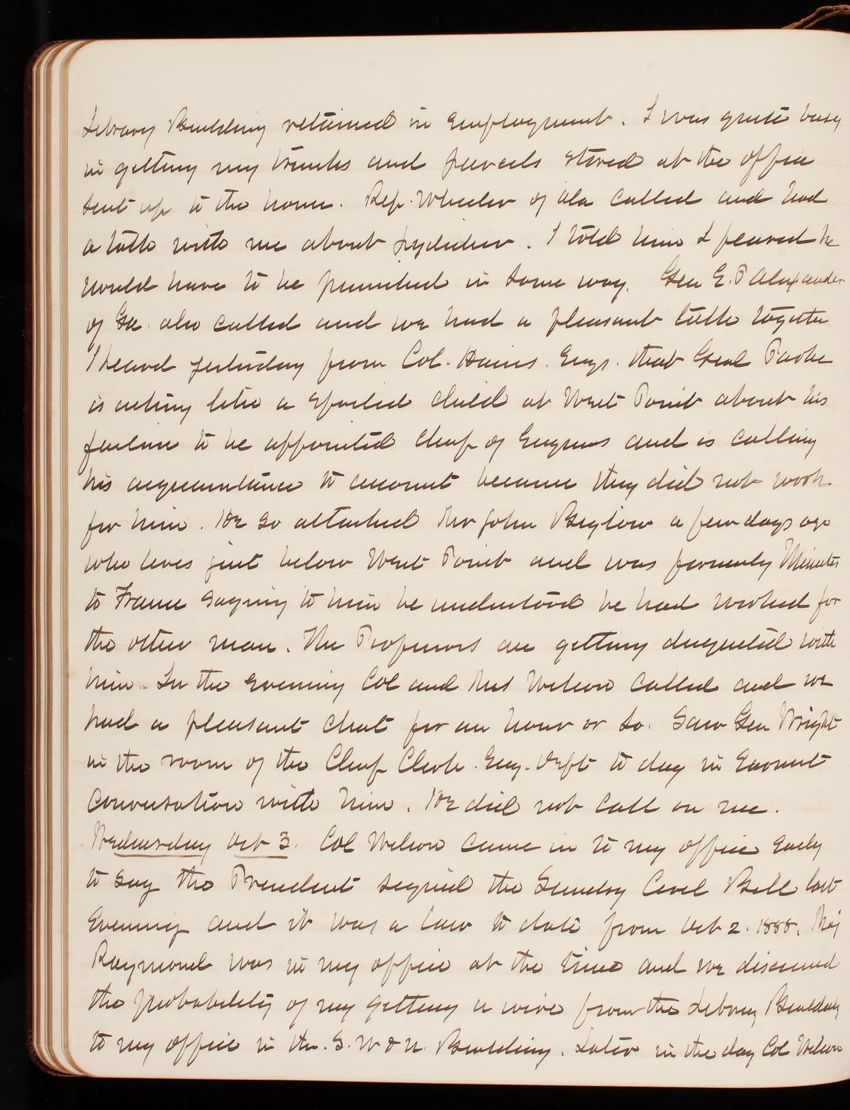 Library Building retained in employment. I was quite busy
in getting my trunks and parcels stored at the office
sent up to the house. Rep. Wheeler of Ala called and had
a talk with me about . I told him I feared he
would have to be punished in some way. Gen E. P Alexander
of Ga. also called and we had a pleasant talk together
I heard yesterday from Col. Hains. Engs. that Genl Parke
is acting like a spoiled child at West Point about his
failure to be appointed Chief of Engineers and is calling
his acquaintance to account because they did not work
for him. He so attacked Mr John Bigelow a few days ago
who lives just below West Point and was formerly Minister
to France saying to him he understood he had worked for
the other man. The Professors are getting disgusted with
him. In the evening Col and Mrs Wilson called and we
had a pleasant chat for an hour or so. Saw Gen Wright
in the room of the Chief Clerk. Eng. Dept to day in earnest
conversation with him. He did not call on me.
Wednesday Oct 3. Col Wilson came in to my office early
to say the President signed the Sundry Civil Bill last
evening and it was a law to date from Oct 2. 1888. Maj
Raymond was in my office at the time and we discussed
the probability of my getting a wire from the Library Building
to my office in the. S. W & N. Building. Later in the day Col Wilson